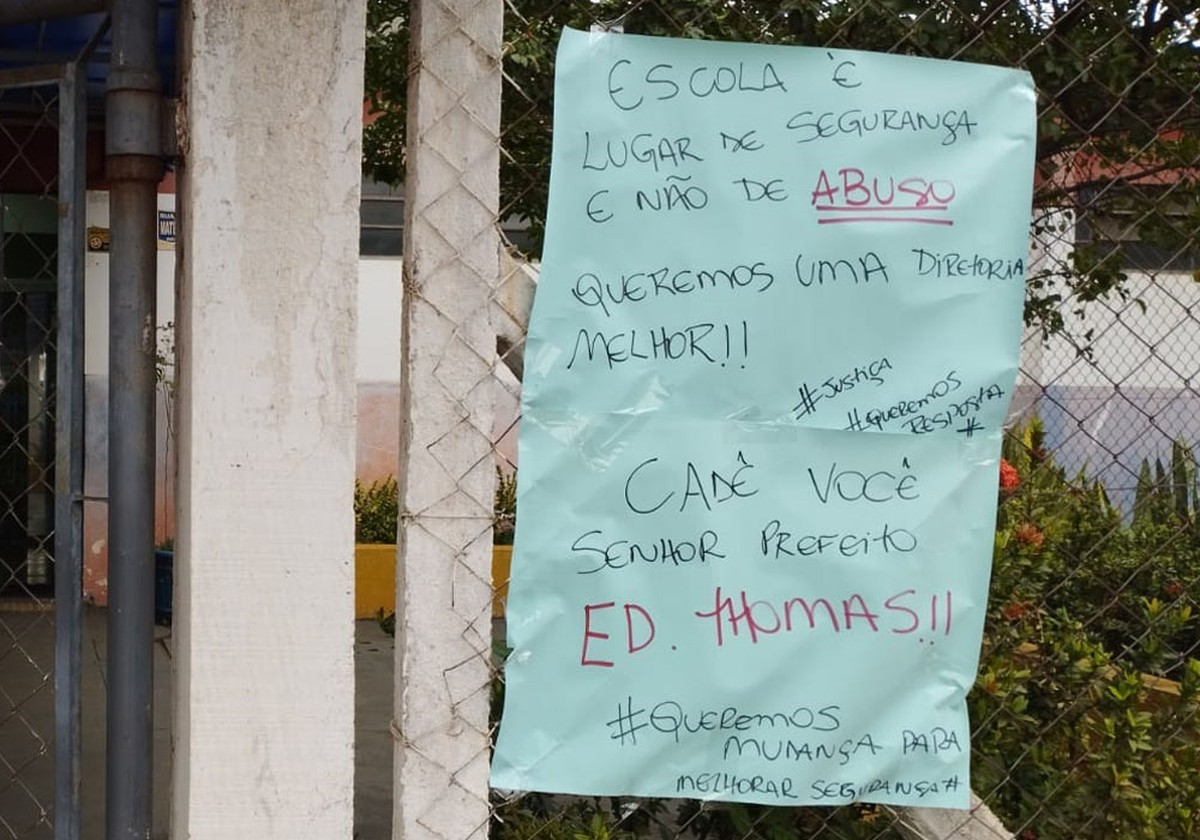 ESCOLA É
LUGAR DE SEGURANÇA
E NÃO DE ABUSO
QUEREMOS UMA DIRETORIA
MELHOR!!
#JUSTIÇA
#QUEREMOS
RESPOSTA
#
CADÊ VOCÊ
SENHOR PREFEITO
ED. THOMAS!!
#QUEREMOS
MUDANÇA PARA
MELHORAR SEGURANÇA#